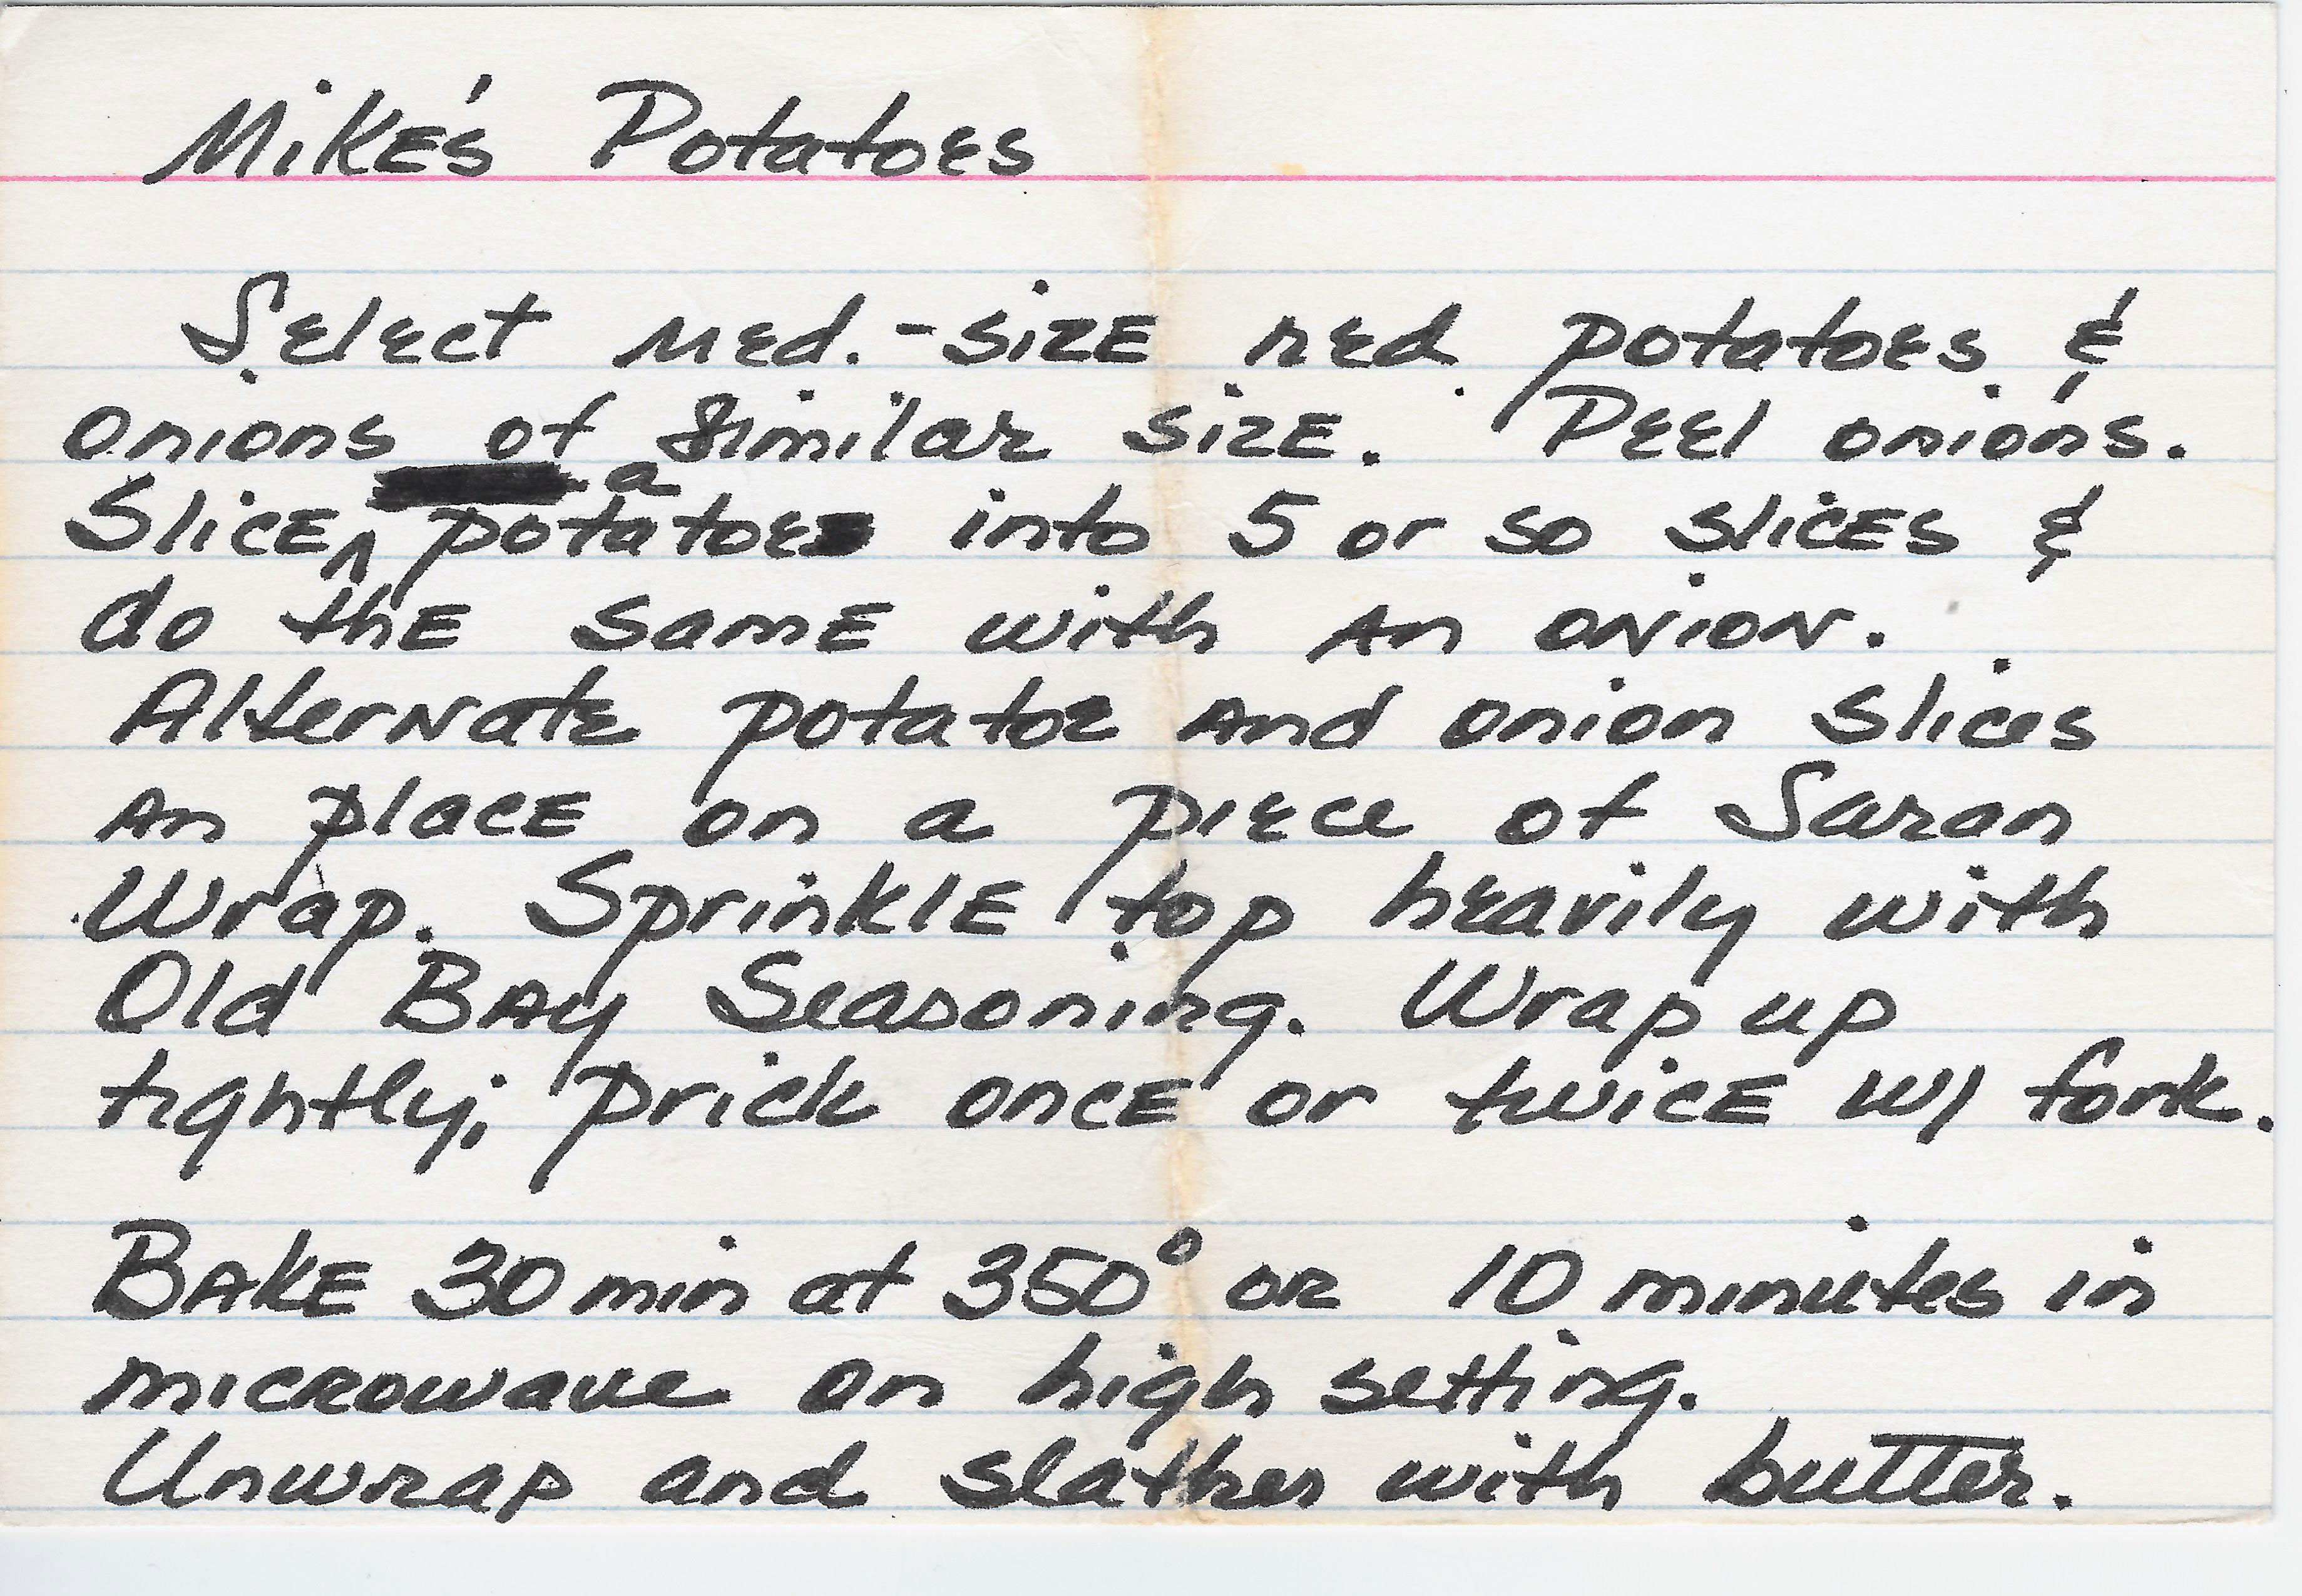 Mike's Potatoes
Select med.-size red potatoes &
onions of similar size. Peel onions.
Slice a potatoe into 5 or so slices &
do the same with an onion.
Alternate potatoe and onion slices
an place on a piece of Saran
Wrap. Sprinkle top heavily with
Old Bay Seasoning. Wrap up
tightly; prick once or twice w/ fork.
Bake 30 min at 350° or 10 minutes in
microwave on high setting.
Unwrap and slather with butter.